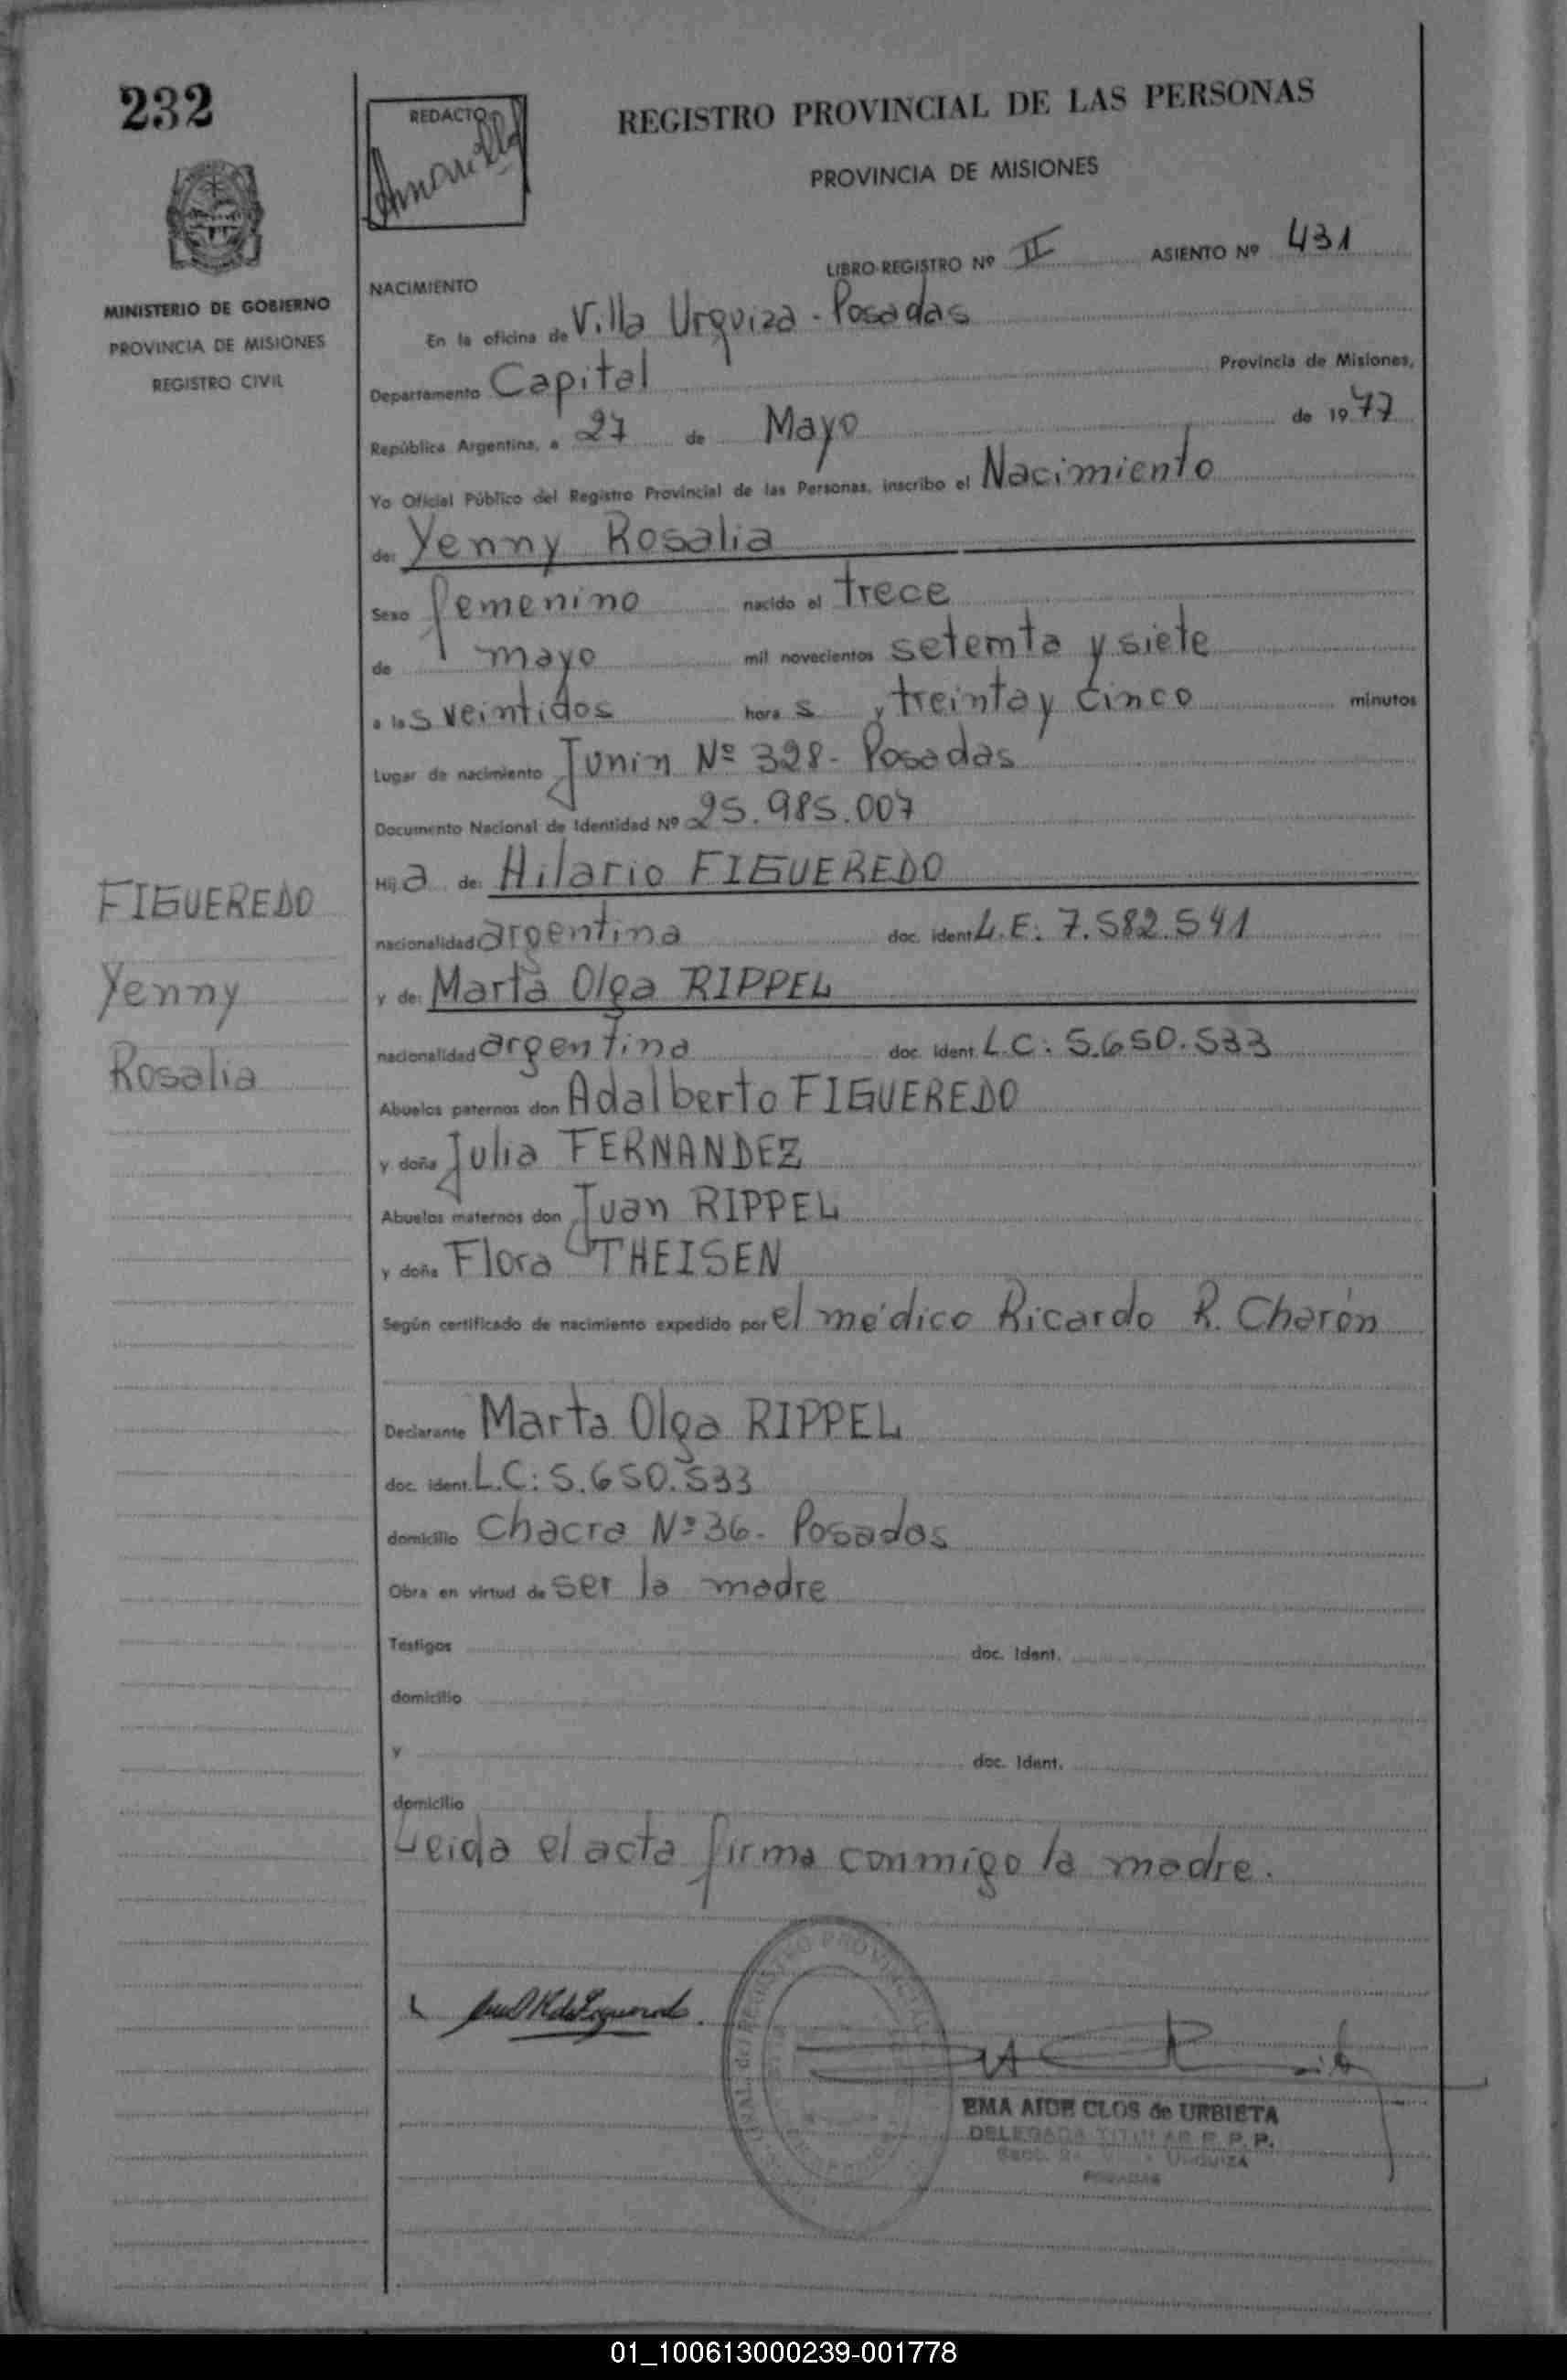 232
REDACTO
REGISTRO PROVINCIAL DE LAS PERSONAS
PROVINCIA DE MISIONES
LIBRO-REGISTRO Nº II ASIENTO Nº 431
MINISTERIO DE GOBIERNO
PROVINCIA DE MISIONES
REGISTRO CIVIL
NACIMIENTO
En la oficina de Villa Urquiza - Posadas
Departamento Capital Provincia de Misiones,
República Argentina, a 27 de Mayo de 1977
Yo Oficial Público del Registro Provincial de las Personas, inscribo el Nacimiento
de: Yenny Rosalia
Sexo femenino nacido el trece
de mayo mil novecientos setemta y siete
a las veintidos horas y treinta y cinco minutos
Lugar de nacimiento Junin Nº 328 - Posadas
Documento Nacional de Identidad Nº 25.985.007
Hija de: Hilario FIGUEREDO
nacionalidad argentina doc. ident. L.E: 7.582.541
y de: Marta Olga RIPPEL
nacionalidad argentina doc. ident. L.C: 5.650.533
Abuelos paternos don Adalberto FIGUEREDO
y doña Julia FERNANDEZ
Abuelos maternos don Juan RIPPEL
y doña Flora THEISEN
Según certificado de nacimiento expedido por el médico Ricardo R. Charón
Declarante Marta Olga RIPPEL
doc. ident. L.C: 5.650.533
domicilio Chacra Nº 36 - Posadas
Obra en virtud de ser la madre
Testigos doc. Ident.
domicilio
y doc. Ident.
domicilio
Leida el acta firma conmigo la madre.
FIGUEREDO
Yenny
Rosalia
EMA AIDE CLOS de URBIETA
DELEGADA TITULAR R. P. P.
URQUIZA
POSADAS
01_100613000239-001778